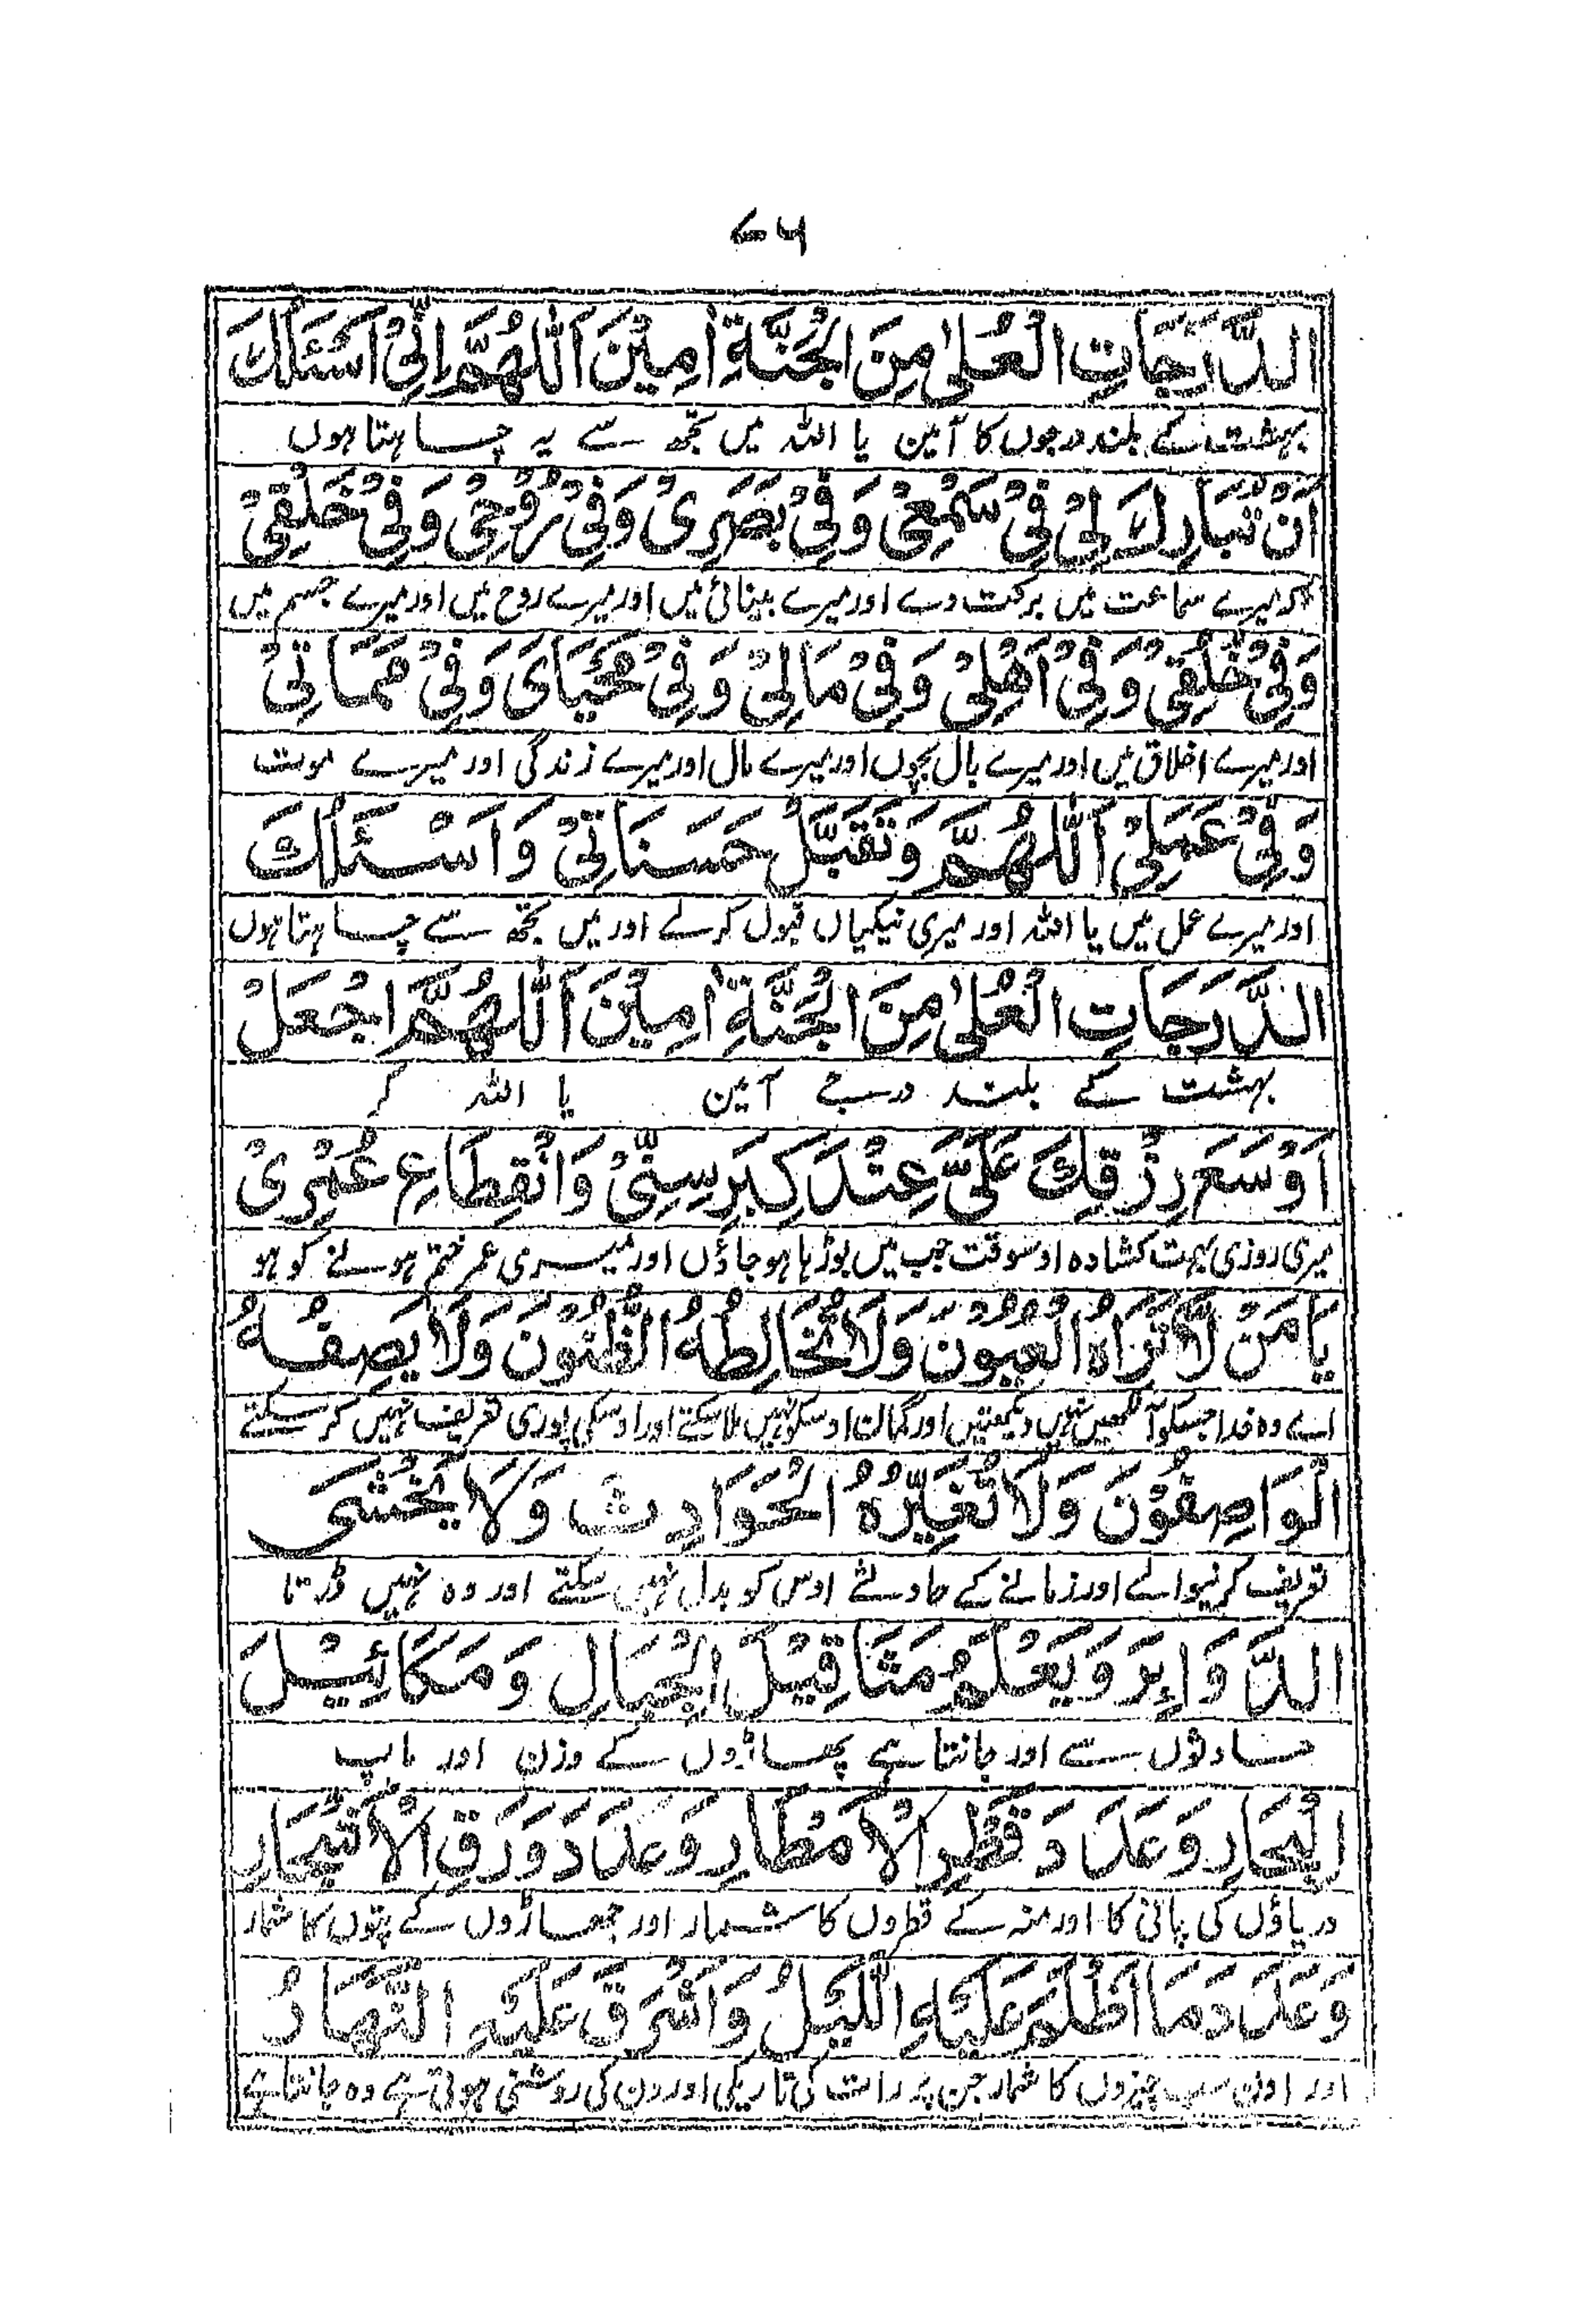 ۷۶
الدَّرَجَاتِ الْعُلٰى مِنَ الْجَنَّةِ اٰمِيْنَ اَللّٰهُمَّ اِنِّيْ اَسْئَلُكَ
بہشت کے بلند درجوں کا آمین یا اللہ میں تجھ سے یہ چاہتا ہوں
اَنْ تُبَارِكَ لِيْ فِيْ سَمْعِيْ وَفِيْ بَصَرِيْ وَفِيْ رُوْحِيْ وَفِيْ خَلْقِيْ
کہ میرے سماعت میں برکت دے اور میرے بینائی میں اور میرے روح میں اور میرے جسم میں
وَفِيْ خُلُقِيْ وَفِيْ اَهْلِيْ وَفِيْ مَالِيْ وَفِيْ مَحْيَايَ وَفِيْ مَمَاتِيْ
اور میرے اخلاق میں اور میرے بال بچوں اور میرے مال اور میرے زندگی اور میرے موت
وَفِيْ عَمَلِيْ اَللّٰهُمَّ وَتَقَبَّلْ حَسَنَاتِيْ وَاَسْئَلُكَ
اور میرے عمل میں یا اللہ اور میری نیکیاں قبول کرلے اور میں تجھ سے چاہتا ہوں
الدَّرَجَاتِ الْعُلٰى مِنَ الْجَنَّةِ اٰمِيْنَ اَللّٰهُمَّ اجْعَلْ
بہشت کے بلند درجے آمین یا اللہ کر
اَوْسَعَ رِزْقِكَ عَلَيَّ عِنْدَ كِبَرِ سِنِّيْ وَانْقِطَاعِ عُمْرِيْ
میری روزی بہت کشادہ اوسوقت جب میں بوڑہا ہوجاؤں اور میری عمر ختم ہونے کو ہو
يَا مَنْ لَّا تَرَاهُ الْعُيُوْنَ وَلَا تُخَالِطُهُ الظُّنُوْنَ وَلَا يَصِفُهُ
اے وہ خدا جسکو آنکھیں نہیں دیکھتیں اور گمان اوسکو نہیں ملا سکتے اور اوسکی پوری تعریف نہیں کرسکتے
الْوَاصِفُوْنَ وَلَا تُغَيِّرُهُ الْحَوَادِثَ وَلَا يَخْشَى
تعریف کرنیوالے اور زمانے کے حادثے اوس کو بدل نہیں سکتے اور وہ نہیں ڈرتا
الدَّوَاِئِرَ وَيَعْلَمُ مَثَاقِيْلَ الْجِبَالِ وَمَكَائِيْلَ
حادثوں سے اور جانتا ہے پہاڑوں کے وزن اور ماپ
الْبِحَارِ وَعَدَدَ قَطْرِ الْاَمْطَارِ وَعَدَدَ وَرَقِ الْاَشْجَارِ
دریاؤں کی پانی کا اور منہ کے قطروں کا شمار اور جھاڑوں کے پتوں کا شمار
وَعَدَدَ مَا اَظْلَمَ عَلَيْهِ اللَّيْلُ وَاَشْرَقَ عَلَيْهِ النَّهَارُ
اور اون سب چیزوں کا شمار جن پر رات کی تاریکی اور دن کی روشنی ہوتی ہے وہ جانتا ہے